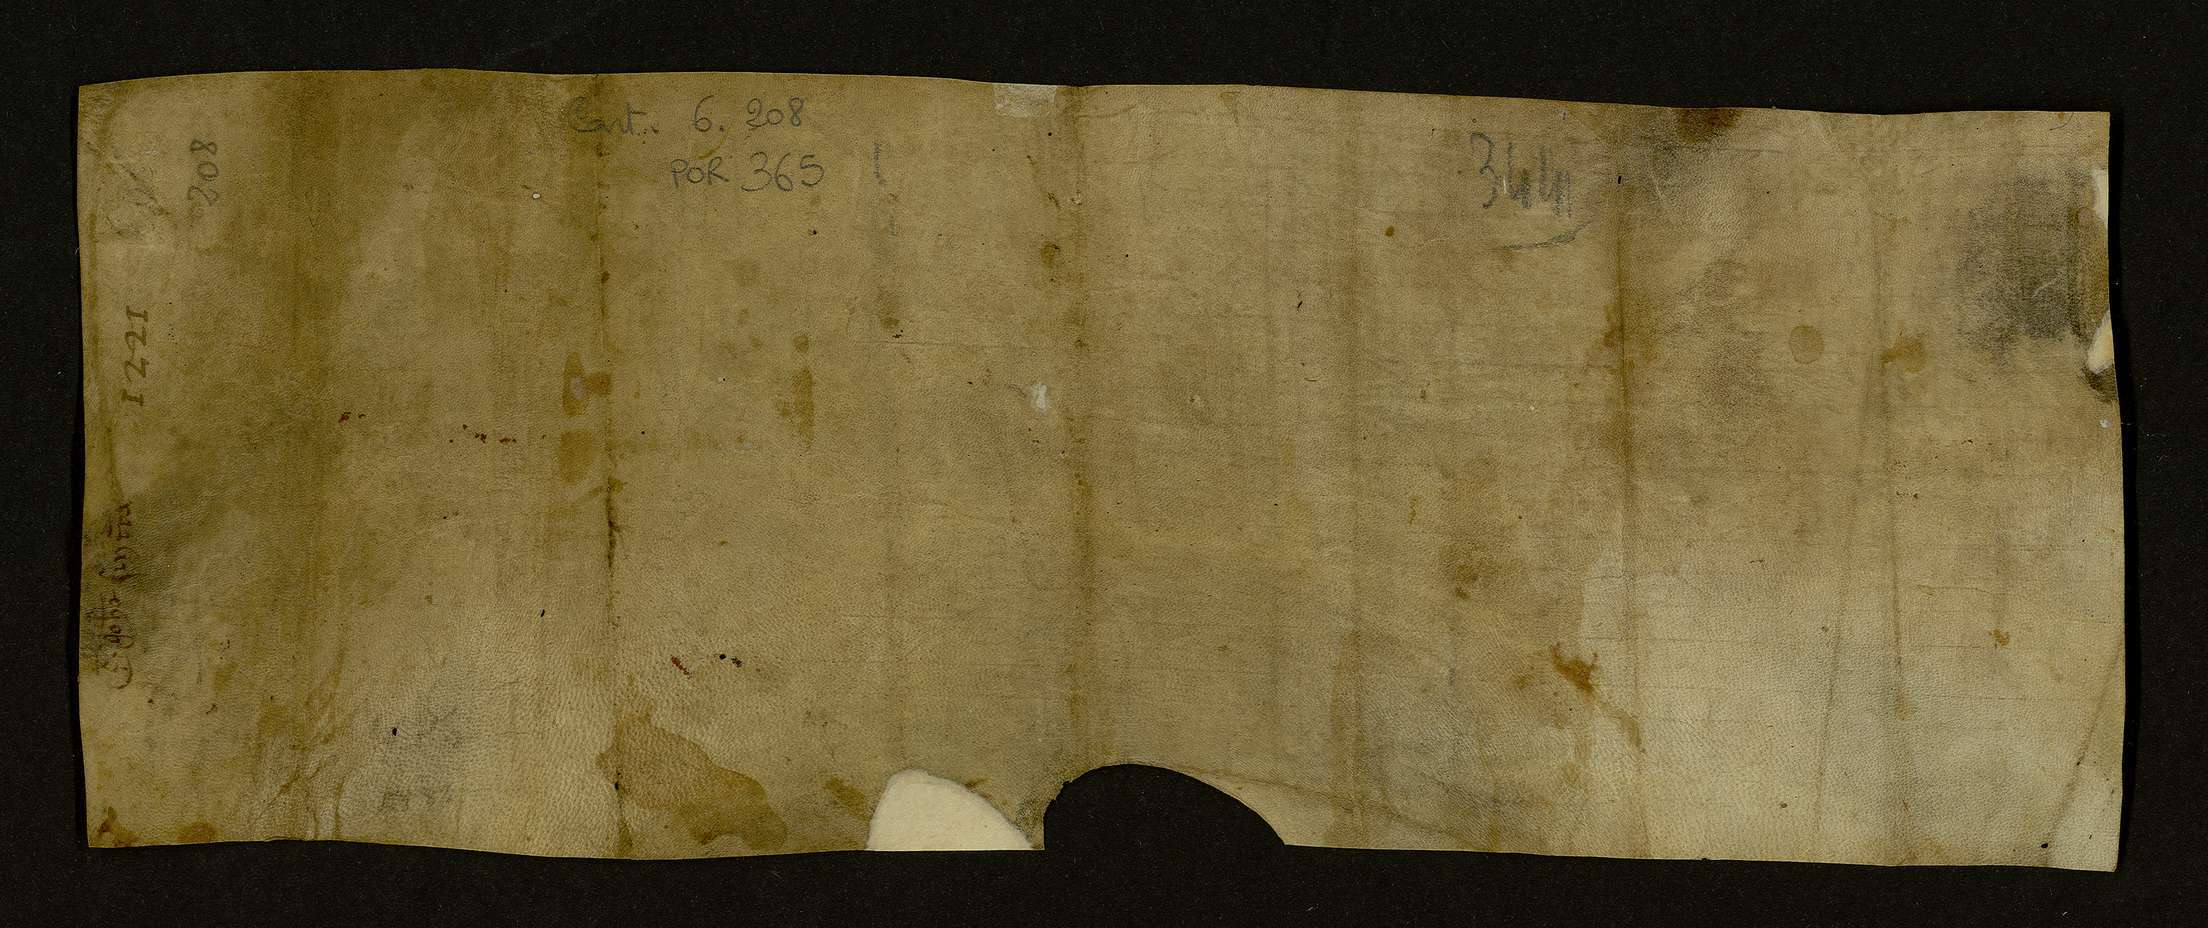 Cart. 6. 208
POR 365
344
208
1221